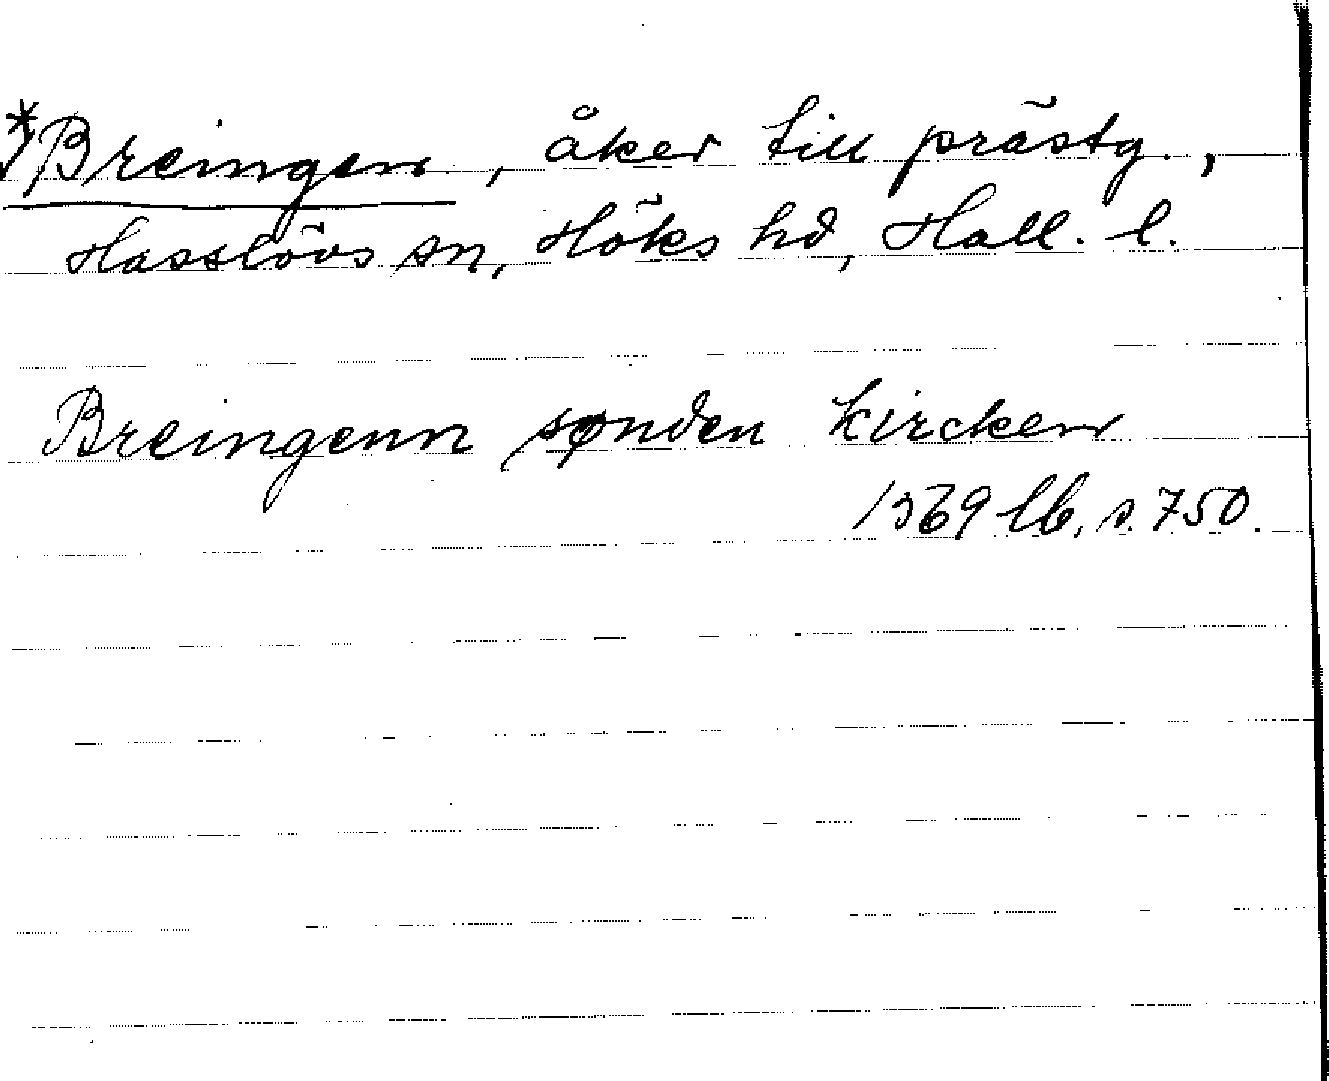 *Breingen, åker till prästg.,
Hasslövs sn, Höks hd, Hall. l.
Breingenn sønden kircken
1569 lb, s. 750.